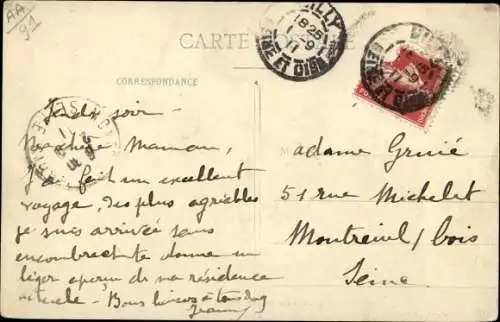 AA
91
CARTE POSTALE
CORRESPONDANCE
Jeudi soir -
Ma chère Maman,
J'ai fait un excellent
voyage, des plus agréables
je suis arrivée sans
encombre te donne un
léger aperçu de ma résidence
actuelle - Bons baisers à tous
Jeanne
18 25
1 - 9
11
SEINE ET OISE
Madame Grivié
51 rue Michelet
Montreuil s/ bois
Seine